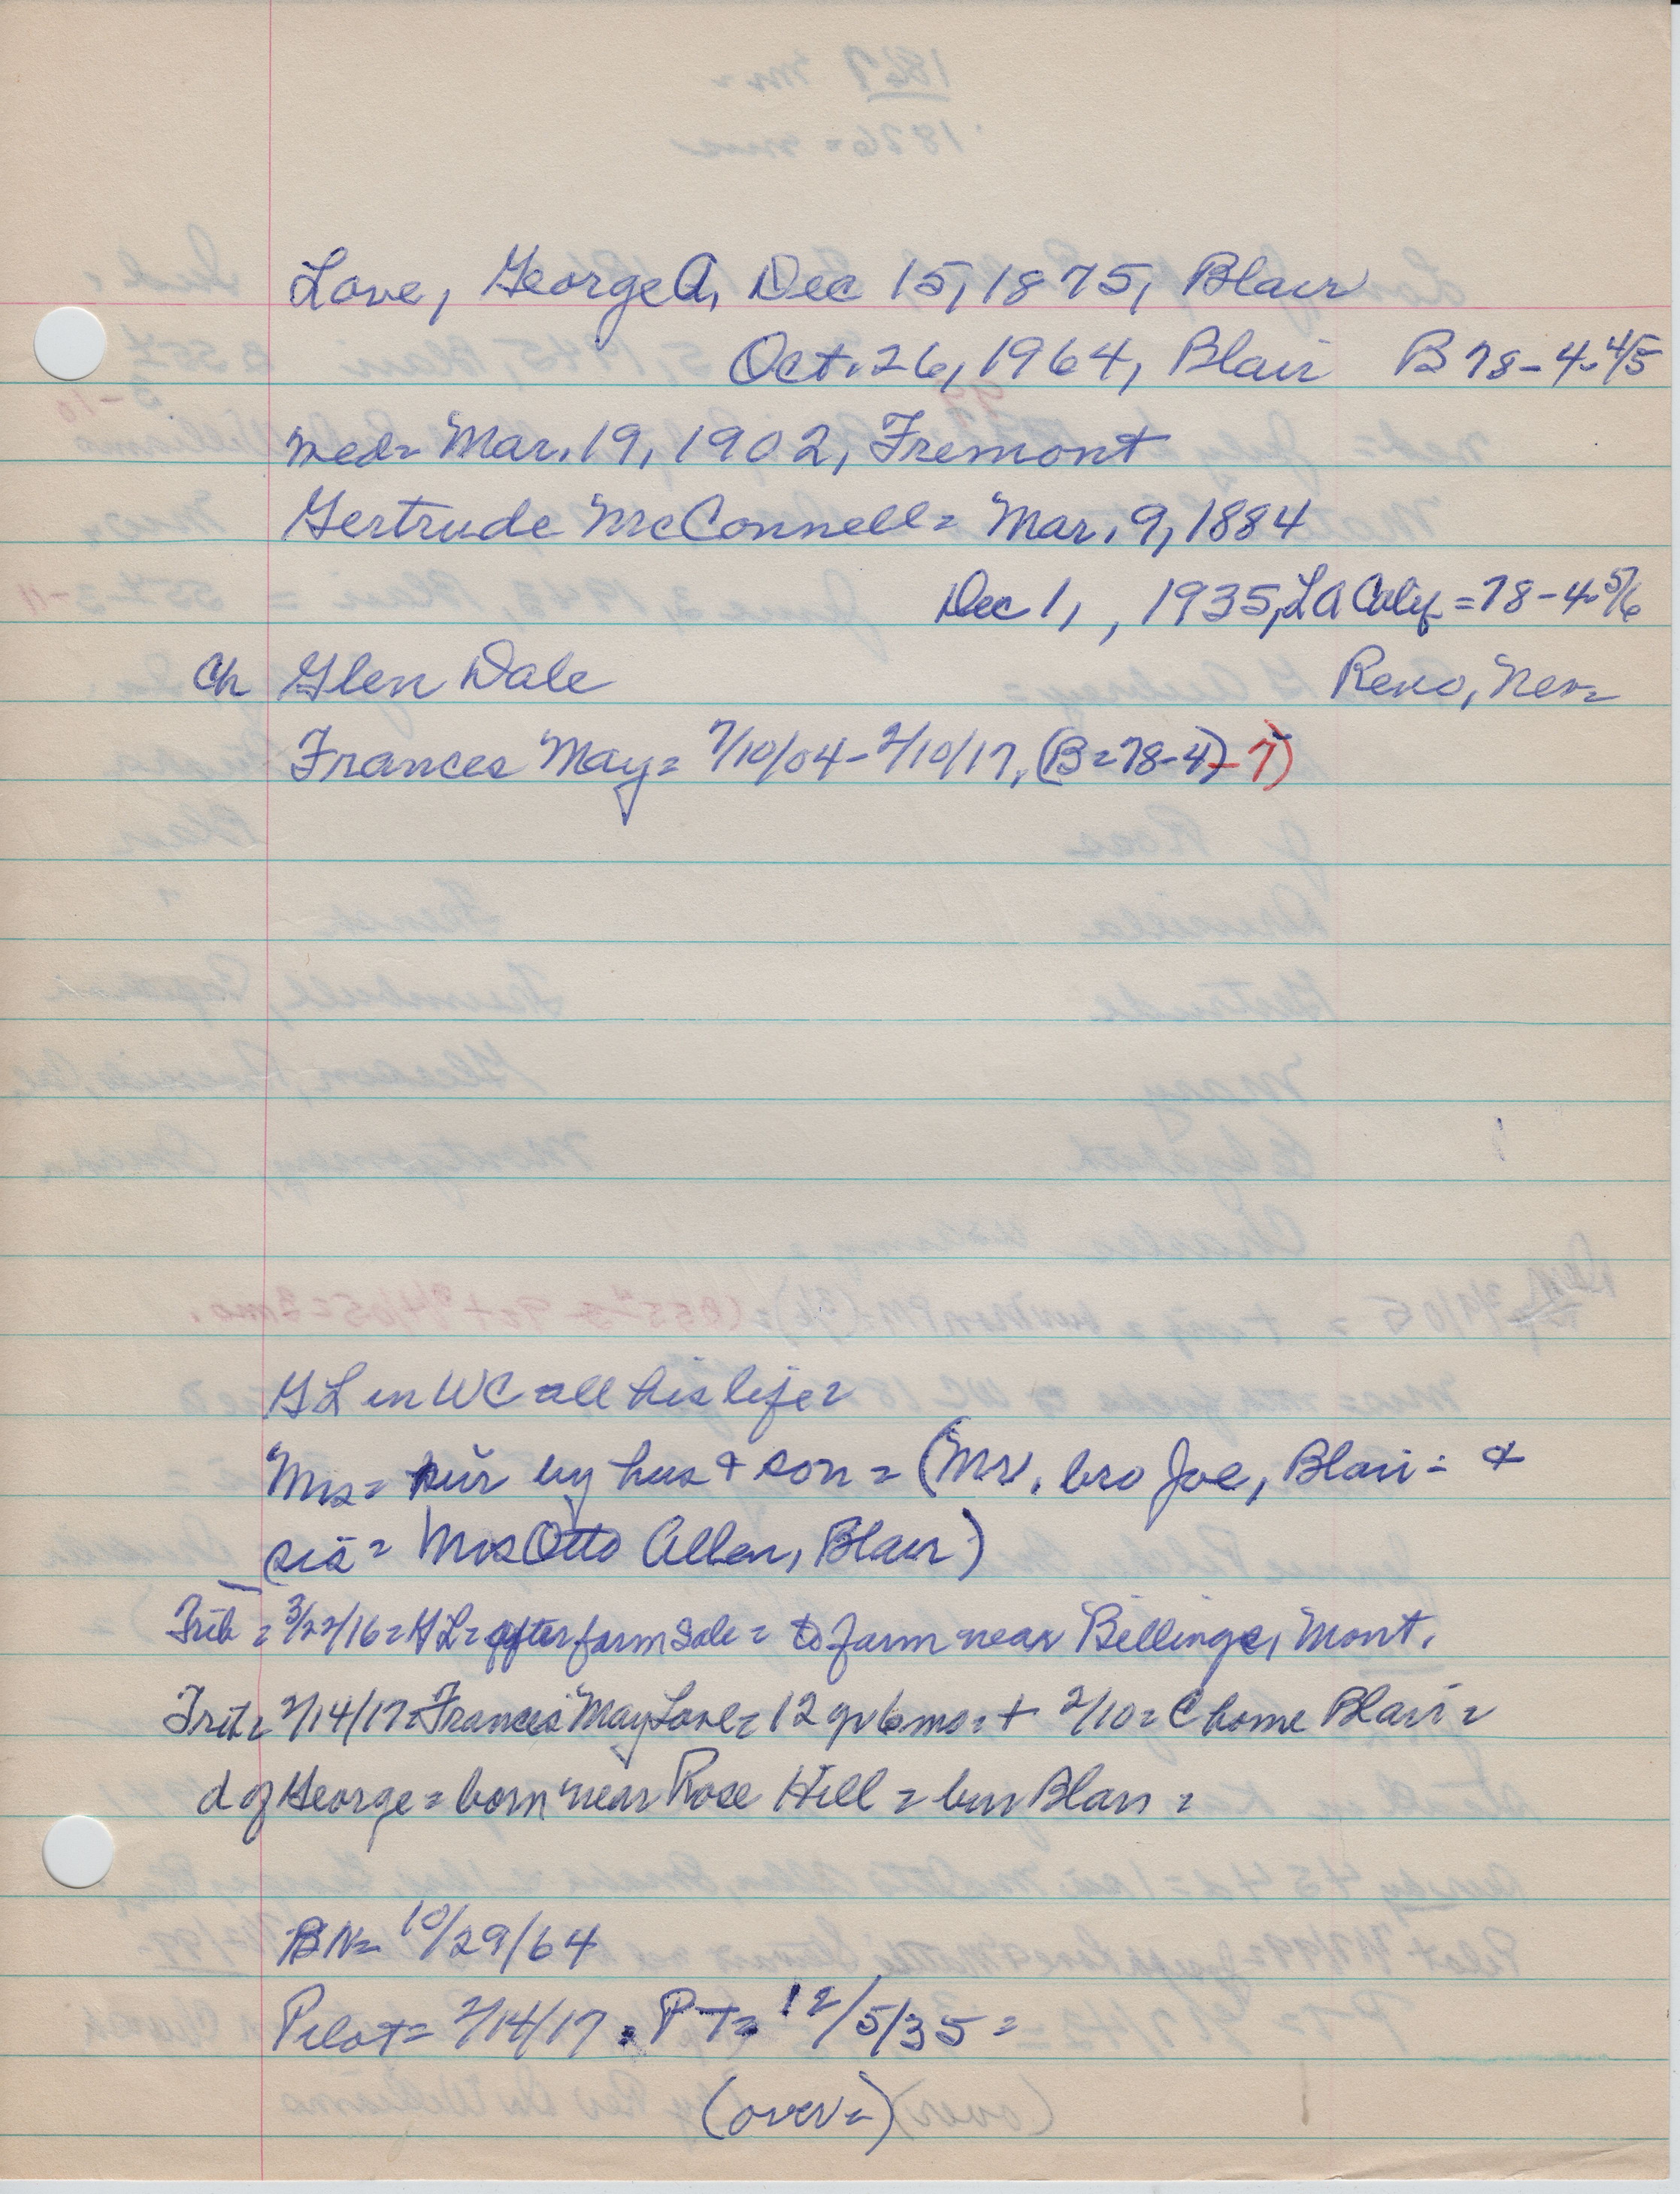 Love, George A, Dec 15, 1875, Blair
Oct. 26, 1964, Blair B 78-4-4/5
med= Mar. 19, 1902, Fremont
Gertrude McConnell= Mar. 9, 1884
Dec 1, , 1935, LA Calif = 78-4-5/6
Ch Glen Dale Reno, Nev=
Frances May= 7/10/04-2/10/17, (B=78-4)-7)
GL in WC all his life=
Mrs= sur by hus + son = (Mr. bro Joe, Blair= +
sis= Mrs Otto Allen, Blair)
Trib= 3/22/16= GL= after farm sale= to farm near Billings, Mont.
Trib= 2/14/17= Frances May Love= 12 yr 6 mo= + 2/10= C home Blair=
d of George= born near Rose Hill = bur Blair=
BN= 10/29/64
Pilot= 2/14/17. PT= 12/5/35=
(over=)